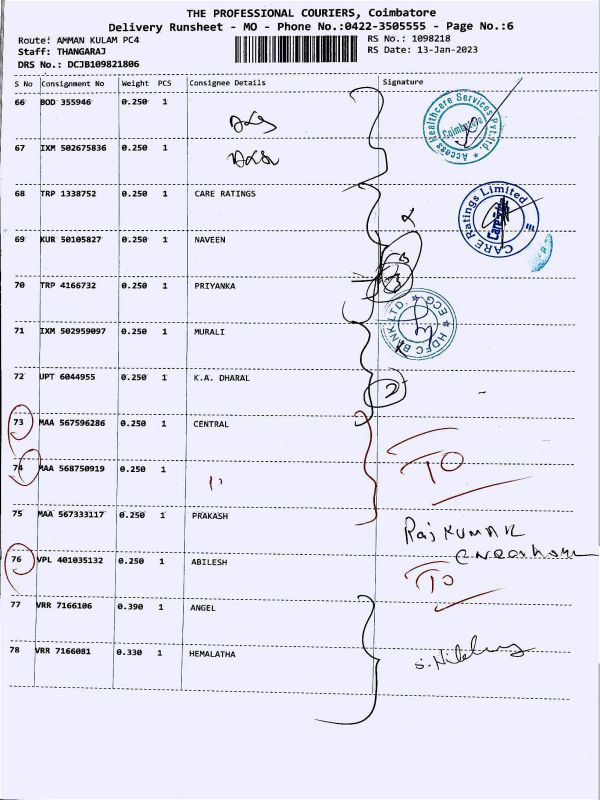 THE PROFESSIONAL COURIERS, Coimbatore
Delivery Runsheet - MO - Phone No.:0422-3505555 - Page No.:6
Route: AMMAN KULAM PC4
RS No.: 1098218
Staff: THANGARAJ
RS Date: 13-Jan-2023
DRS No.: DCJB109821806
S No Consignment No Weight PCS Consignee Details Signature
66 BOD 355946 0.250 1
Access Healthcare Services Pvt.Ltd. ★ Coimbatore
67 IXM 502675836 0.250 1
68 TRP 1338752 0.250 1 CARE RATINGS
CARE Ratings Limited
69 KUR 50105827 0.250 1 NAVEEN
70 TRP 4166732 0.250 1 PRIYANKA
71 IXM 502959097 0.250 1 MURALI
HDFC BANK LTD. ★ ECG ★
72 UPT 6044955 0.250 1 K.A. DHARAL
2
73 MAA 567596286 0.250 1 CENTRAL
TO
74 MAA 568750919 0.250 1 "
75 MAA 567333117 0.250 1 PRAKASH
Raj KUMAR
76 VPL 401035132 0.250 1 ABILESH
TO
77 VRR 7166106 0.390 1 ANGEL
78 VRR 7166081 0.330 1 HEMALATHA